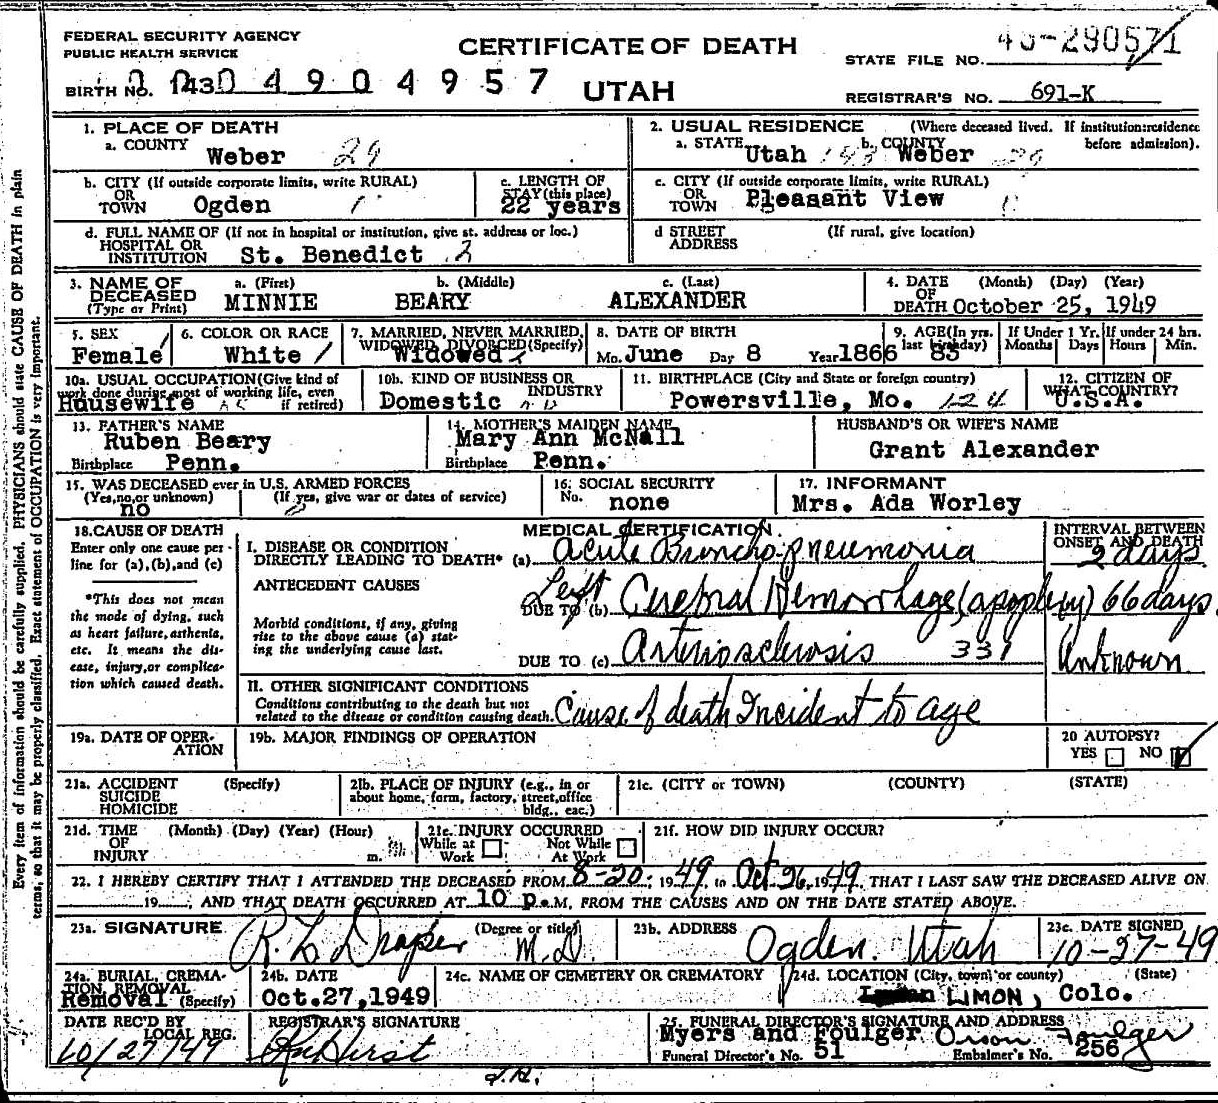 FEDERAL SECURITY AGENCY
PUBLIC HEALTH SERVICE
CERTIFICATE OF DEATH
UTAH
STATE FILE NO.
BIRTH NO. 04904957
REGISTRAR'S NO. 691-K
1. PLACE OF DEATH
a. COUNTY
Weber 29
2. USUAL RESIDENCE (Where deceased lived. If institution:residence before admission).
a. STATE Utah b. COUNTY Weber 29
b. CITY (If outside corporate limits, write RURAL)
OR
TOWN Ogden
c. LENGTH OF
STAY (this place)
22 years
c. CITY (If outside corporate limits, write RURAL)
OR
TOWN Pleasant View
d. FULL NAME OF (If not in hospital or institution, give st. address or loc.)
HOSPITAL OR
INSTITUTION St. Benedict 2
d STREET
ADDRESS (If rural, give location)
3. NAME OF
DECEASED
(Type or Print)
a. (First) b. (Middle) c. (Last)
MINNIE BEARY ALEXANDER
4. DATE (Month) (Day) (Year)
OF
DEATH October 25, 1949
5. SEX
Female
6. COLOR OR RACE
White
7. MARRIED, NEVER MARRIED,
WIDOWED, DIVORCED (Specify)
Widowed
8. DATE OF BIRTH
Mo. June Day 8 Year 1866
9. AGE (In yrs.
last birthday)
83
If Under 1 Yr.
Months Days
If under 24 hrs.
Hours Min.
10a. USUAL OCCUPATION (Give kind of
work done during most of working life, even
if retired)
Housewife
10b. KIND OF BUSINESS OR
INDUSTRY
Domestic
11. BIRTHPLACE (City and State or foreign country)
Powersville, Mo. 124
12. CITIZEN OF
WHAT COUNTRY?
U.S.A.
13. FATHER'S NAME
Ruben Beary
Birthplace Penn.
14. MOTHER'S MAIDEN NAME
Mary Ann McNall
Birthplace Penn.
HUSBAND'S OR WIFE'S NAME
Grant Alexander
15. WAS DECEASED ever in U.S. ARMED FORCES
(Yes,no,or unknown) (If yes, give war or dates of service)
no
16. SOCIAL SECURITY
No. none
17. INFORMANT
Mrs. Ada Worley
18. CAUSE OF DEATH
Enter only one cause per
line for (a),(b),and (c)
*This does not mean
the mode of dying, such
as heart failure, asthenia,
etc. It means the dis-
ease, injury,or complica-
tion which caused death.
MEDICAL CERTIFICATION
I. DISEASE OR CONDITION
DIRECTLY LEADING TO DEATH* (a) Acute Broncho-pneumonia
ANTECEDENT CAUSES
Left
DUE TO (b) Cerebral Hemorrhage (apoplexy) 66 days
Morbid conditions, if any, giving
rise to the above cause (a) stat-
ing the underlying cause last.
DUE TO (c) Arteriosclerosis 331
INTERVAL BETWEEN
ONSET AND DEATH
2 days
Unknown
II. OTHER SIGNIFICANT CONDITIONS
Conditions contributing to the death but not
related to the disease or condition causing death.
Cause of death Incident to age
19a. DATE OF OPER-
ATION
19b. MAJOR FINDINGS OF OPERATION
20 AUTOPSY?
YES NO
21a. ACCIDENT (Specify)
SUICIDE
HOMICIDE
21b. PLACE OF INJURY (e.g., in or
about home, farm, factory, street,office
bldg., eac.)
21c. (CITY or TOWN) (COUNTY) (STATE)
21d. TIME (Month) (Day) (Year) (Hour)
OF
INJURY m.
21e. INJURY OCCURRED
While at Work Not While At Work
21f. HOW DID INJURY OCCUR?
22. I HEREBY CERTIFY THAT I ATTENDED THE DECEASED FROM 8-20, 1949 to Oct 26, 1949, THAT I LAST SAW THE DECEASED ALIVE ON
19, AND THAT DEATH OCCURRED AT 10 p.M, FROM THE CAUSES AND ON THE DATE STATED ABOVE.
23a. SIGNATURE (Degree or title)
R. L. Draper M.D.
23b. ADDRESS
Ogden. Utah
23c. DATE SIGNED
10-27-49
24a. BURIAL, CREMA-
TION, REMOVAL
Removal (Specify)
24b. DATE
Oct.27,1949
24c. NAME OF CEMETERY OR CREMATORY
24d. LOCATION (City, town, or county) (State)
LIMON, Colo.
DATE REC'D BY
LOCAL REG.
10/27/49
REGISTRAR'S SIGNATURE
25. FUNERAL DIRECTOR'S SIGNATURE AND ADDRESS
Myers and Foulger Orson Foulger
Funeral Director's No. 51 Embalmer's No. 256
Every item of information should be carefully supplied. PHYSICIANS should state CAUSE OF DEATH in plain
terms, so that it may be properly classified. Exact statement of OCCUPATION is very important.